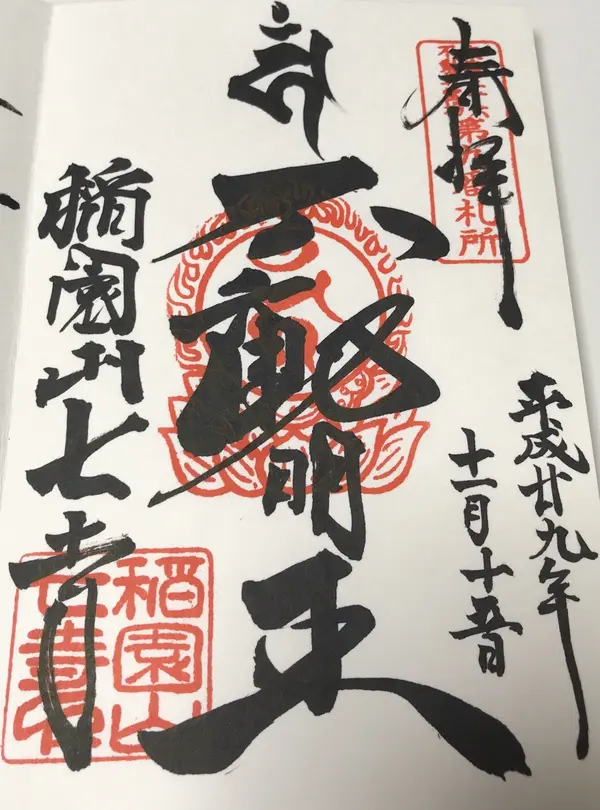 奉拝
番札所
平成廿九年
十一月十五日
不動明王
稲園山七寺
稲園山